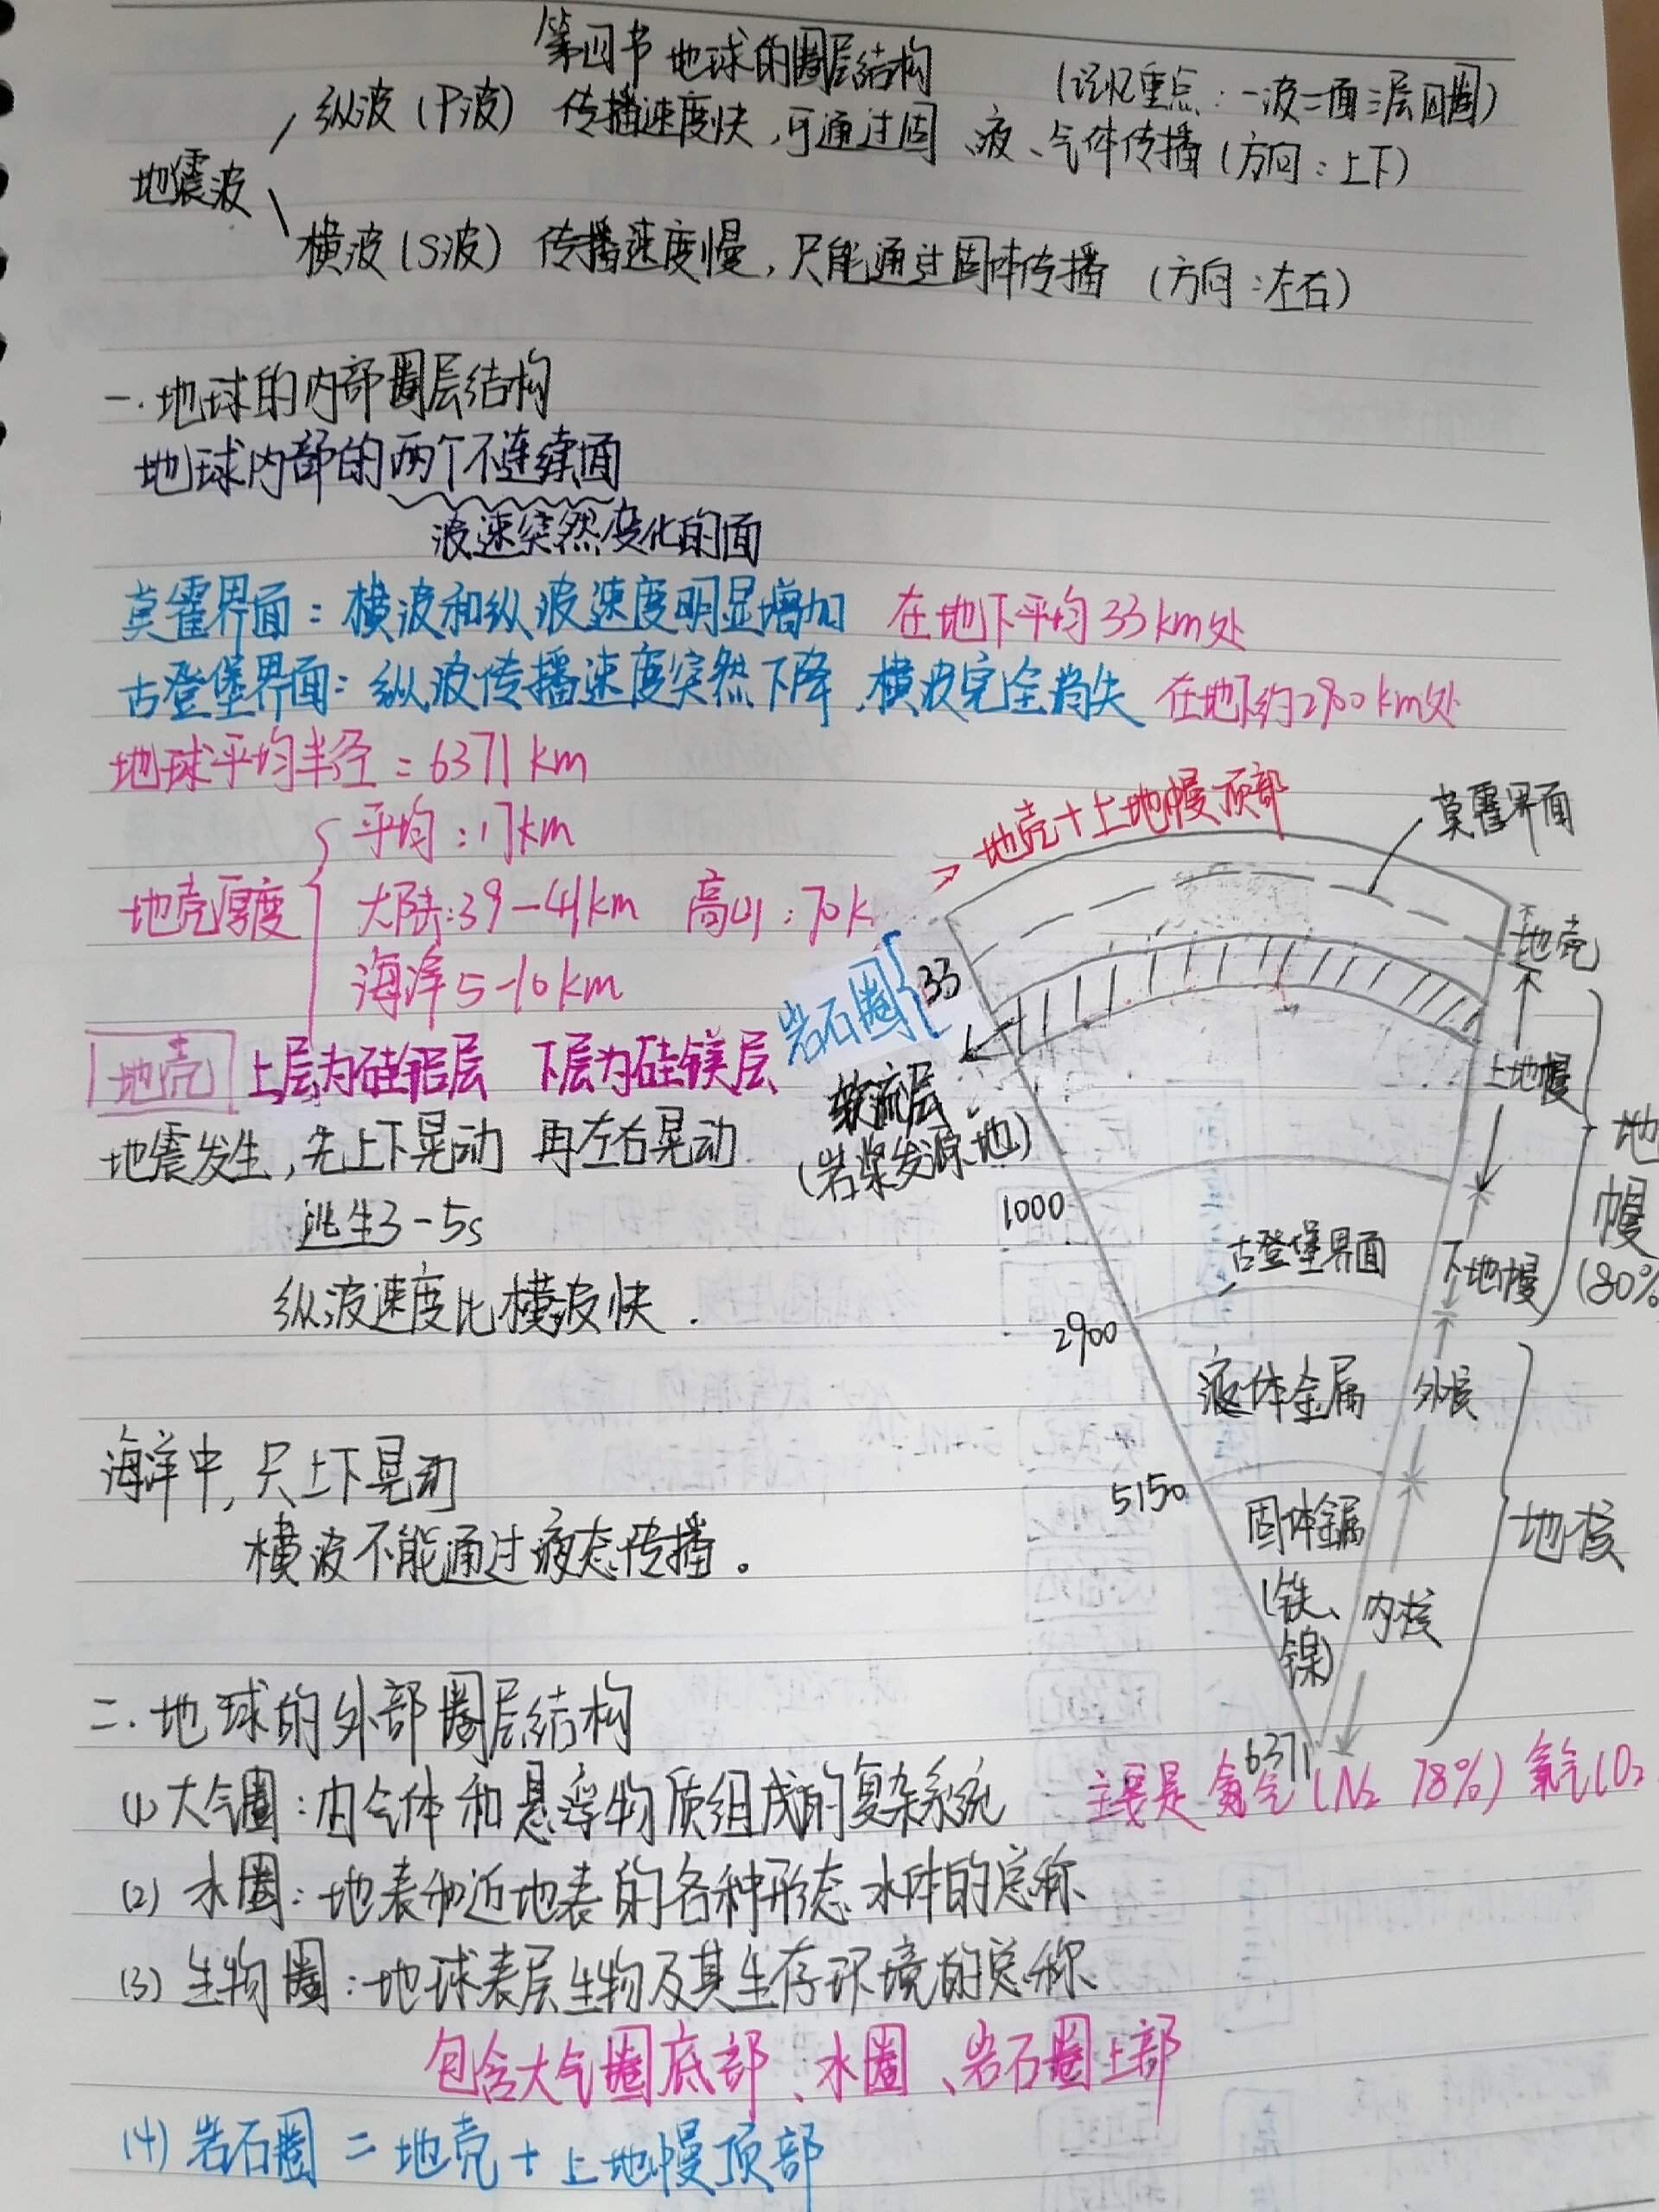 第四节 地球的圈层结构
(记忆重点：一波二面三层四圈)
纵波(P波) 传播速度快，可通过固、液、气体传播(方向：上下)
地震波
横波(S波) 传播速度慢，只能通过固体传播 (方向：左右)
一.地球的内部圈层结构
地球内部的两个不连续面
波速突然变化的面
莫霍界面：横波和纵波速度明显增加 在地下平均33km处
古登堡界面：纵波传播速度突然下降，横波完全消失 在地下约2900km处
地球平均半径=6371km
平均：17km
地壳厚度
大陆：39-41km 高山：70k
海洋5-10km
地壳 上层为硅铝层 下层为硅镁层
地震发生，先上下晃动 再左右晃动
逃生3-5s
纵波速度比横波快.
海洋中，只上下晃动
横波不能通过液态传播。
→地壳+上地幔顶部
莫霍界面
地壳
岩石圈
33
软流层
(岩浆发源地)
上地幔
地幔
(80%
1000
古登堡界面
下地幔
2900
液体金属
外核
5150
固体金属
(铁、镍)
内核
地核
6371
二.地球的外部圈层结构
(1)大气圈：由气体和悬浮物质组成的复杂系统 主要是氮气(N₂ 78%)氧气(O₂
(2)水圈：地表和近地表的各种形态水体的总称
(3)生物圈：地球表层生物及其生存环境的总称
包含大气圈底部、水圈、岩石圈上部
(4)岩石圈=地壳+上地幔顶部